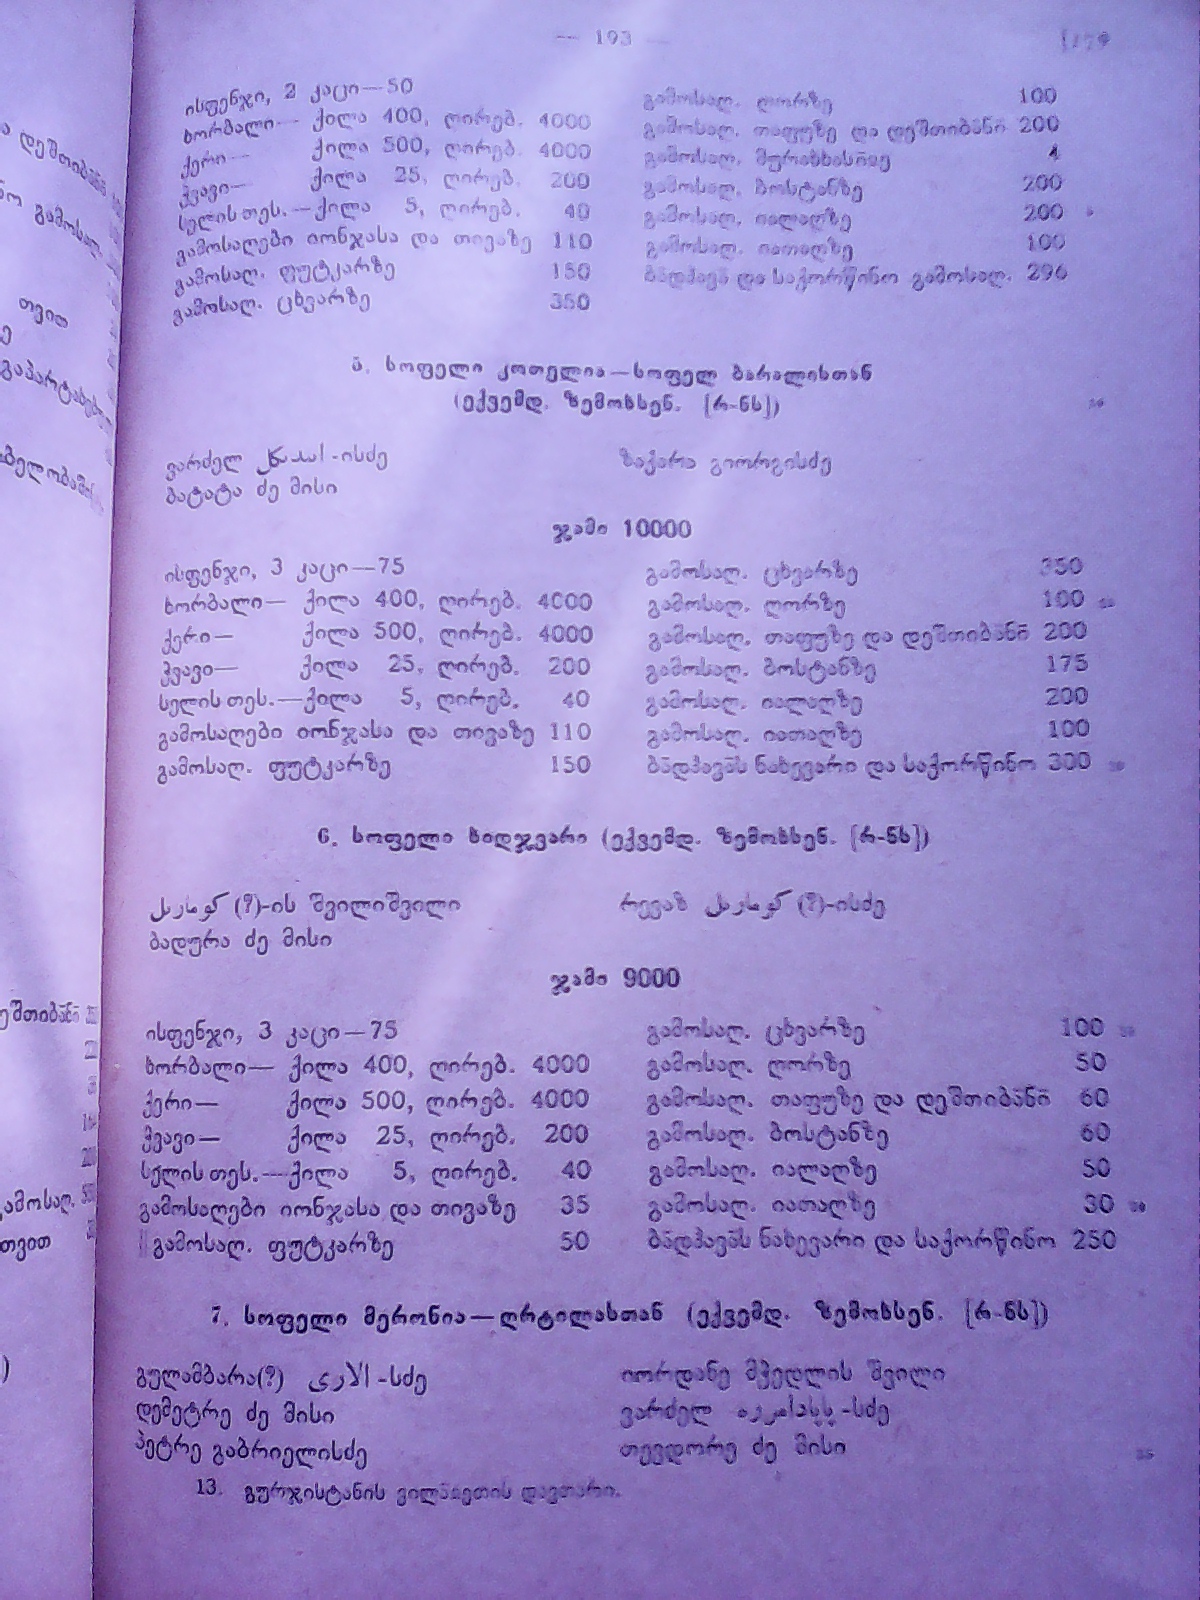 — 193 —
ისფენჯი, 2 კაცი—50
ხორბალი— ქილა 400, ღირებ. 4000
ქერი— ქილა 500, ღირებ. 4000
ჭვავი— ქილა 25, ღირებ. 200
სელის თეს.—ქილა 5, ღირებ. 40
გამოსაღები იონჯასა და თივაზე 110
გამოსაღ. ფუტკარზე 150
გამოსაღ. ცხვარზე 350
გამოსაღ. ღორზე 100
გამოსაღ. თაფუზე და დეშთიბანი 200
გამოსაღ. 4
გამოსაღ. ბოსტანზე 200
გამოსაღ. იალაღზე 200
გამოსაღ. იათაღზე 100
ბადჰავა და საქორწინო გამოსაღ. 296
5. სოფელი კოთელია—სოფელ ბარალისთან
(ექვემდ. ზემოხსენ. [რ-ნს])
ვარძელ -ისძე
ბატატა ძე მისი
ზაქარა გიორგისძე
ჯამი 10000
ისფენჯი, 3 კაცი—75
ხორბალი— ქილა 400, ღირებ. 4000
ქერი— ქილა 500, ღირებ. 4000
ჭვავი— ქილა 25, ღირებ. 200
სელის თეს.—ქილა 5, ღირებ. 40
გამოსაღები იონჯასა და თივაზე 110
გამოსაღ. ფუტკარზე 150
გამოსაღ. ცხვარზე 350
გამოსაღ. ღორზე 100
გამოსაღ. თაფუზე და დეშთიბანი 200
გამოსაღ. ბოსტანზე 175
გამოსაღ. იალაღზე 200
გამოსაღ. იათაღზე 100
ბადჰავას ნახევარი და საქორწინო 300
6. სოფელი ხიდჯვარი (ექვემდ. ზემოხსენ. [რ-ნს])
(?)-ის შვილიშვილი
ბადურა ძე მისი
რევაზ (?)-ისძე
ჯამი 9000
ისფენჯი, 3 კაცი—75
ხორბალი— ქილა 400, ღირებ. 4000
ქერი— ქილა 500, ღირებ. 4000
ჭვავი— ქილა 25, ღირებ. 200
სელის თეს.—ქილა 5, ღირებ. 40
გამოსაღები იონჯასა და თივაზე 35
გამოსაღ. ფუტკარზე 50
გამოსაღ. ცხვარზე 100
გამოსაღ. ღორზე 50
გამოსაღ. თაფუზე და დეშთიბანი 60
გამოსაღ. ბოსტანზე 60
გამოსაღ. იალაღზე 50
გამოსაღ. იათაღზე 30
ბადჰავას ნახევარი და საქორწინო 250
7. სოფელი მერონია—ღრტილასთან (ექვემდ. ზემოხსენ. [რ-ნს])
გულამბარა(?) -სძე
დემეტრე ძე მისი
პეტრე გაბრიელისძე
იორდანე მჭედლის შვილი
ვარძელ -სძე
თევდორე ძე მისი
13. გურჯისტანის ვილაიეთის დავთარი.